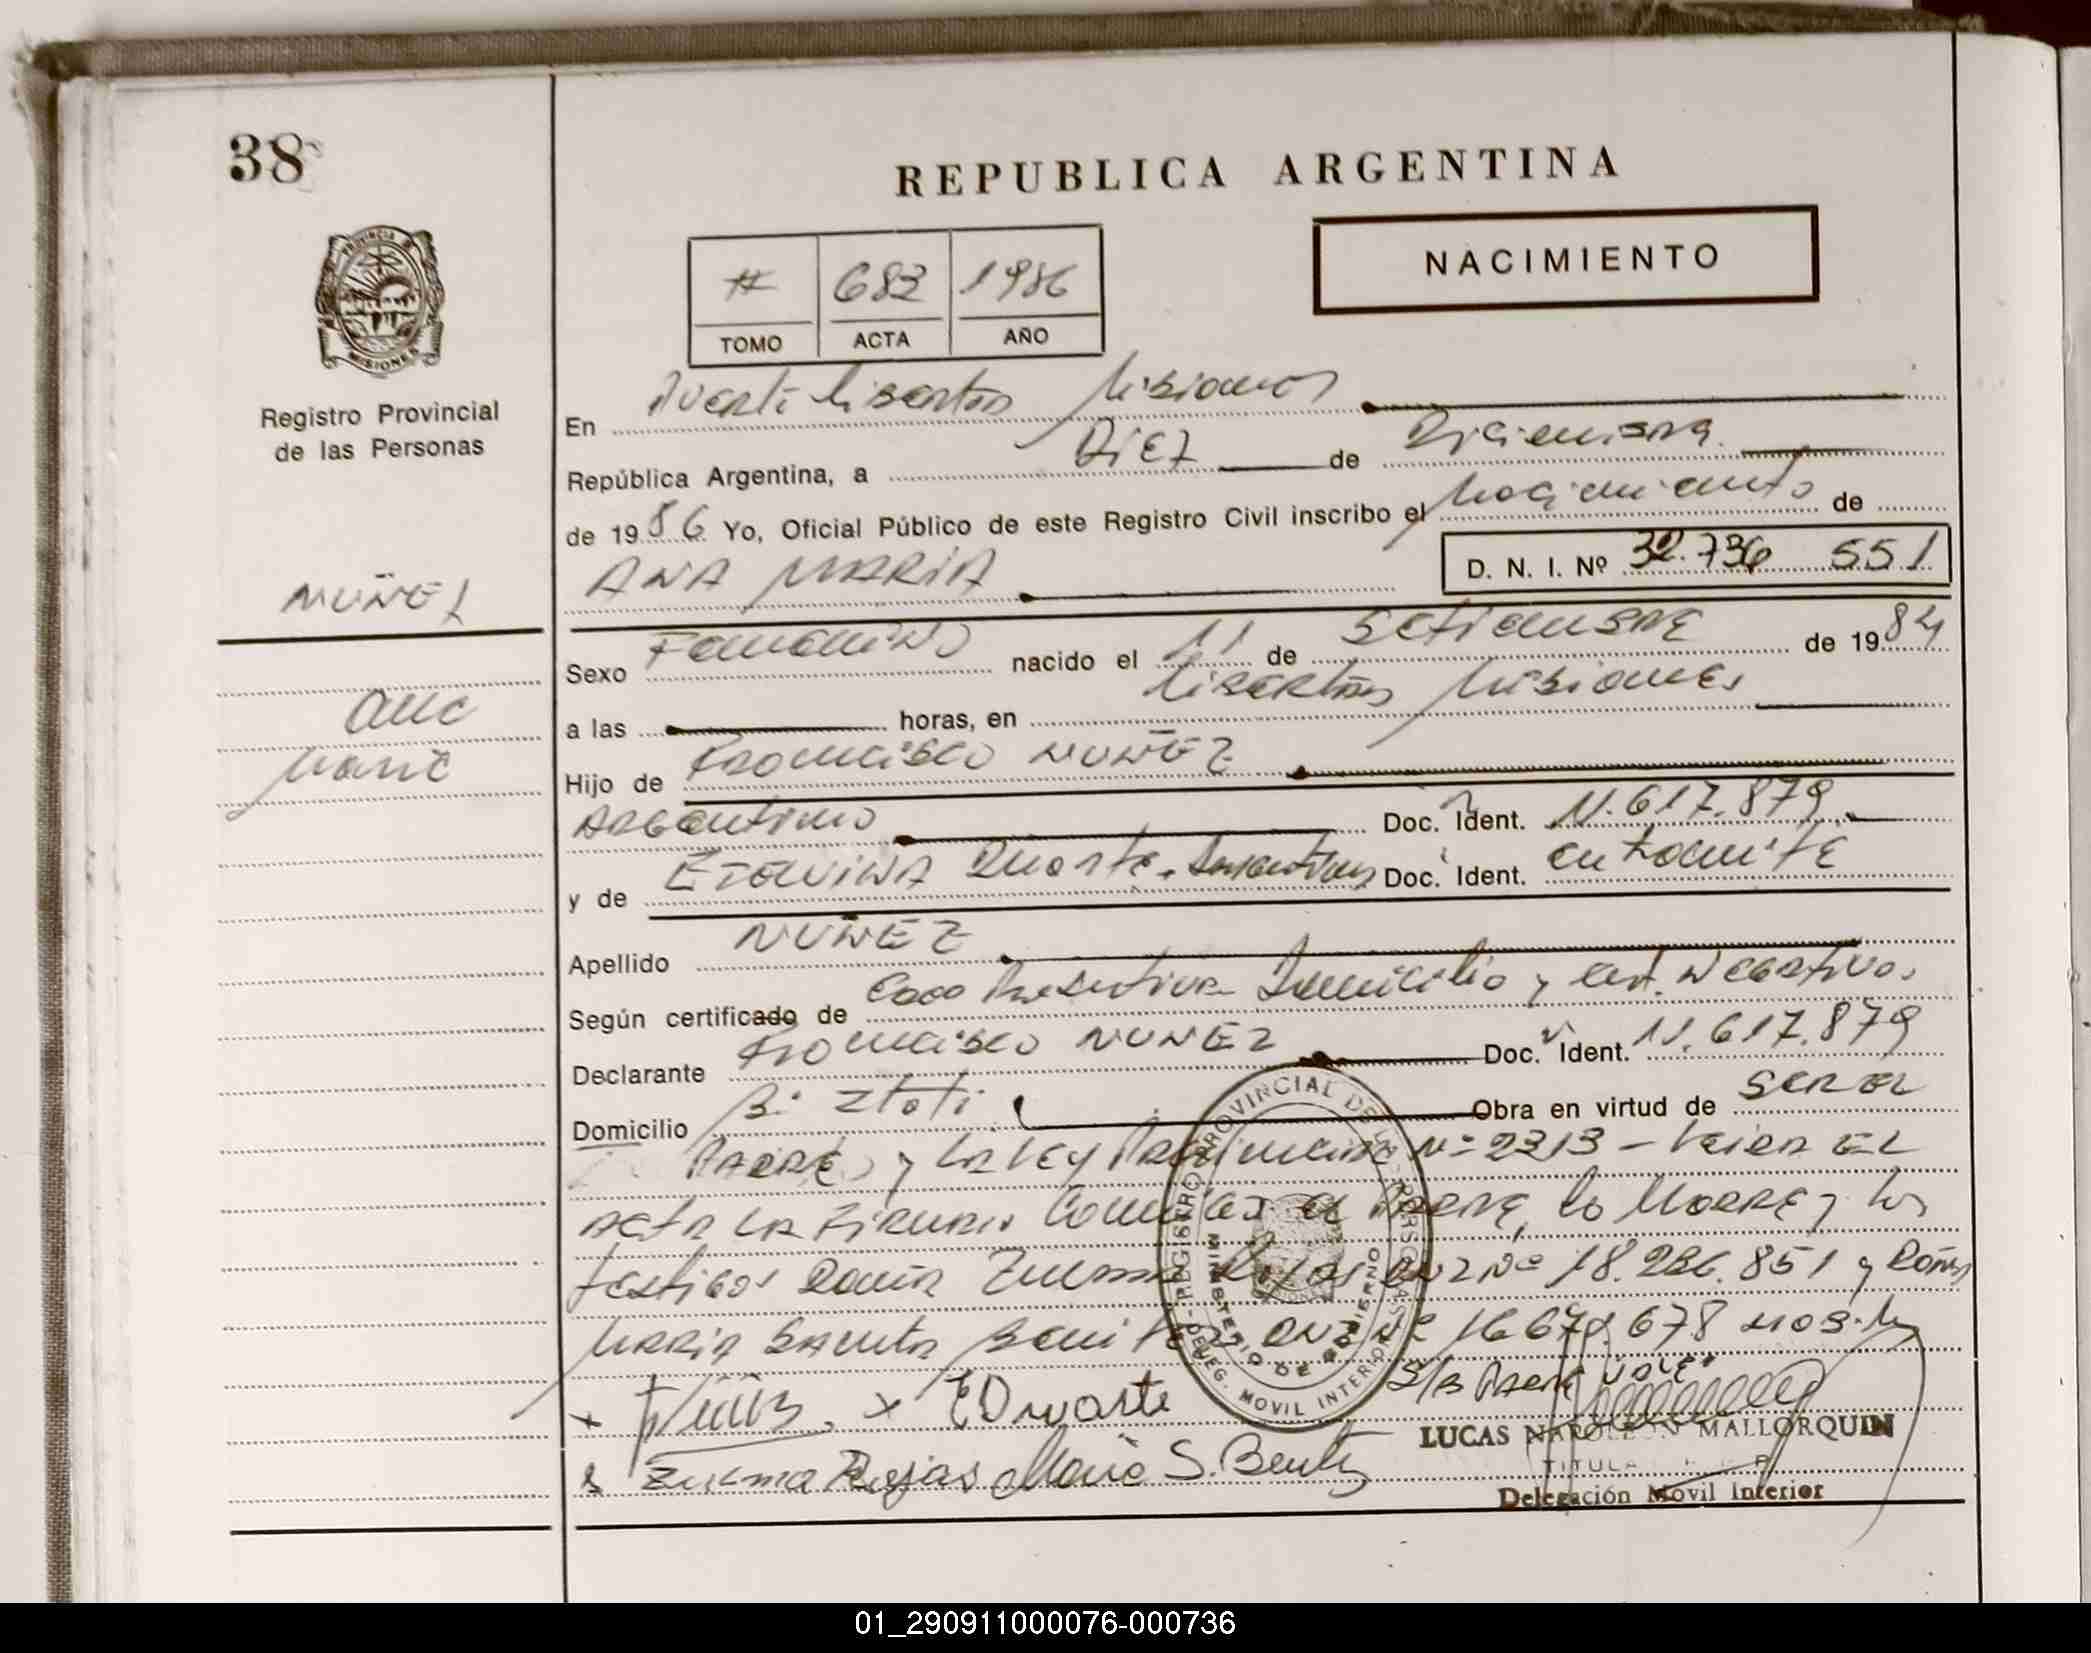 38
REPUBLICA ARGENTINA
PROVINCIA DE MISIONES
NACIMIENTO
# 683 1986
TOMO ACTA AÑO
Registro Provincial
de las Personas
En Puerto Libertad Misiones
República Argentina, a Diez de Diciembre
de 1986 Yo, Oficial Público de este Registro Civil inscribo el Nacimiento de
NUÑEZ
ANA MARIA D. N. I. Nº 32.736 551
Sexo Femenino nacido el 11 de Setiembre de 1984
Ana
Maria
a las horas, en Libertad Misiones
Hijo de Francisco NUÑEZ
Argentino Doc. Ident. 11.617.879
y de Duarte. Argentina Doc. Ident. en tramite
Apellido NUÑEZ
Según certificado de Domicilio y cert. Negativo
Declarante Francisco NUÑEZ Doc. Ident. 11.617.879
Domicilio Bº Obra en virtud de SER EL
PADRE y la Ley Nº 2313 - EL
ACTA el PADRE, la MADRE y los
testigos Doña Zulma Rojas DNI Nº 18.286.851 y Doña
Maria Santa Benitez DNI Nº 16.678
S/R PADRE VALE
E Duarte
Zulma Rojas Maria S. Benitez
REGISTRO PROVINCIAL DE LAS PERSONAS
MINISTERIO DE GOBIERNO
DELEG. MOVIL INTERIOR
LUCAS NAPOLEON MALLORQUIN
TITULAR
Delegación Movil Interior
01_290911000076-000736